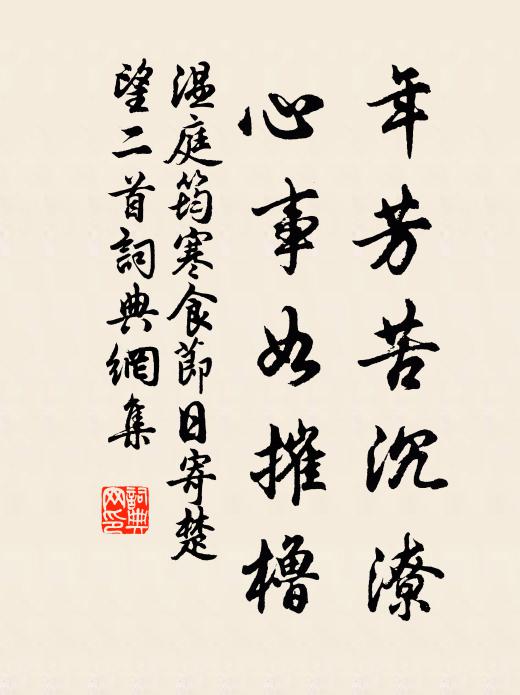 年芳苦沉潦
心事如摧櫓
温庭筠寒食節日寄楚
望二首詞典網集
詞典
网印